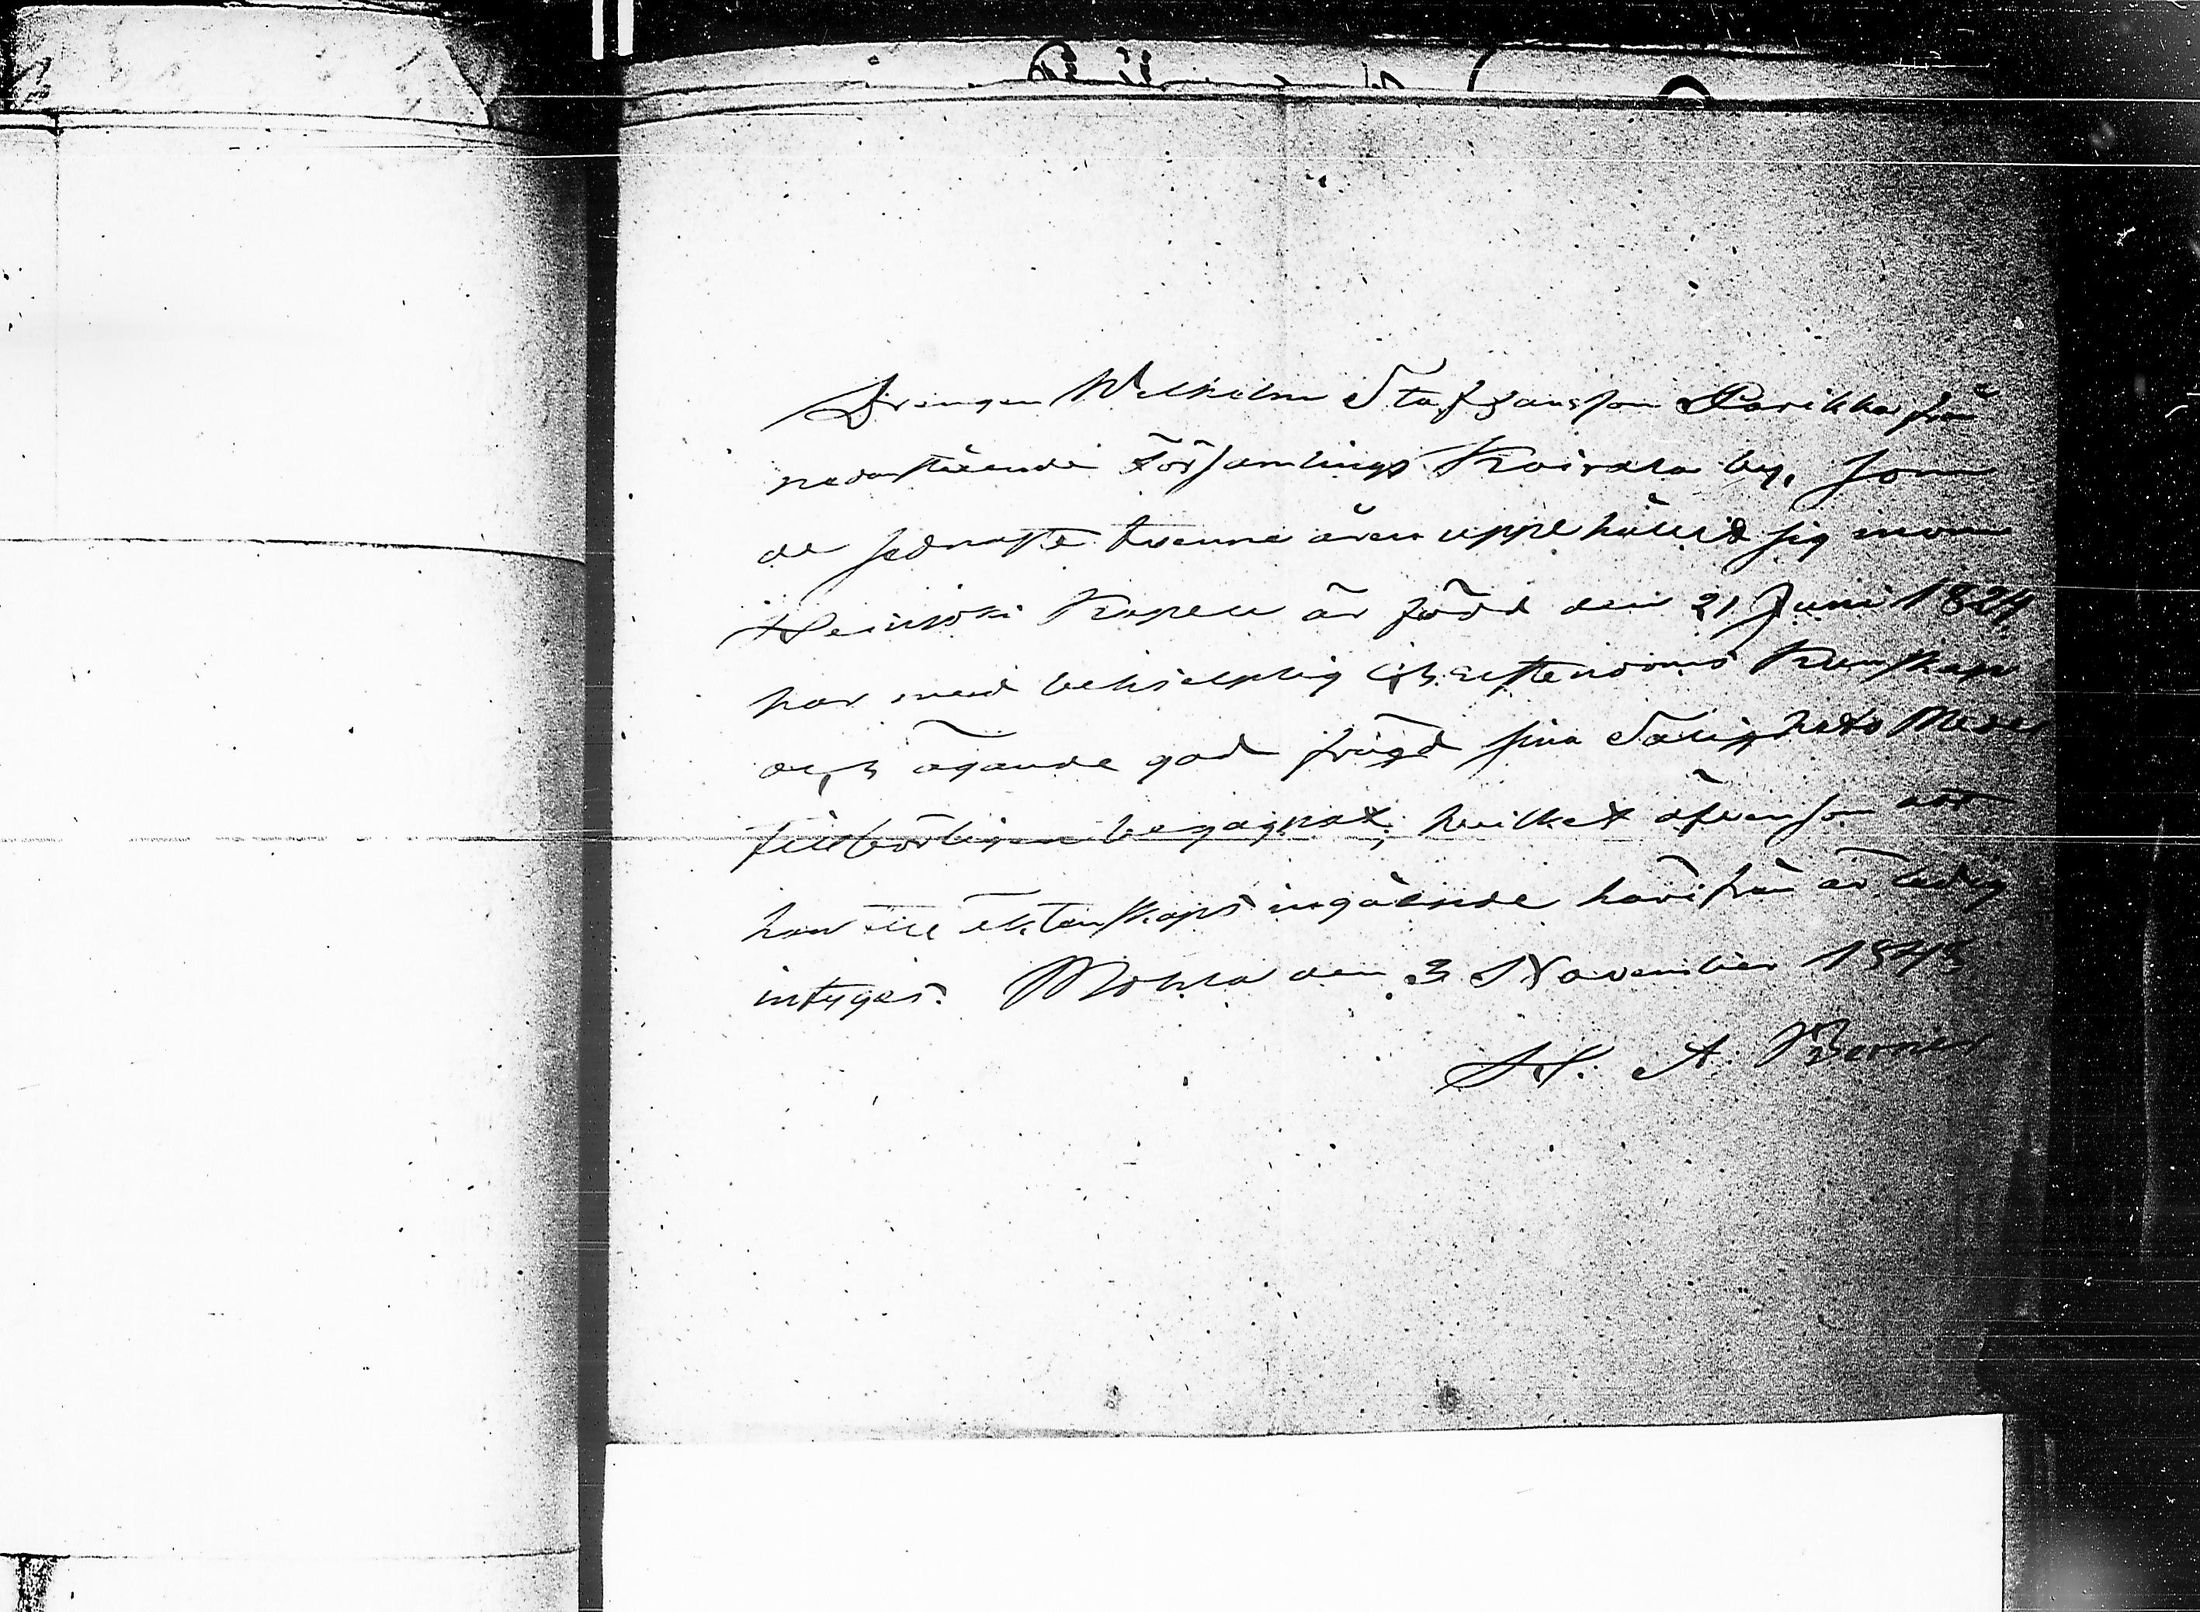 Drengen Wilhelm Staffansson Parikka från
nedanstående Församlings Koirala by, som
de sednaste tvenne åren uppehållit sig inom
Heinjoki Kapell är född den 21 Juni 1824,
har med behjelplig Christendoms Kunskap
och ägande god frägd sina Salighets Medel
tillbörligen begagnat; hvilket äfvensom att
han till ektenskaps ingående härifrån är ledig
intygas. Mohla den 3 November 184
H. A.